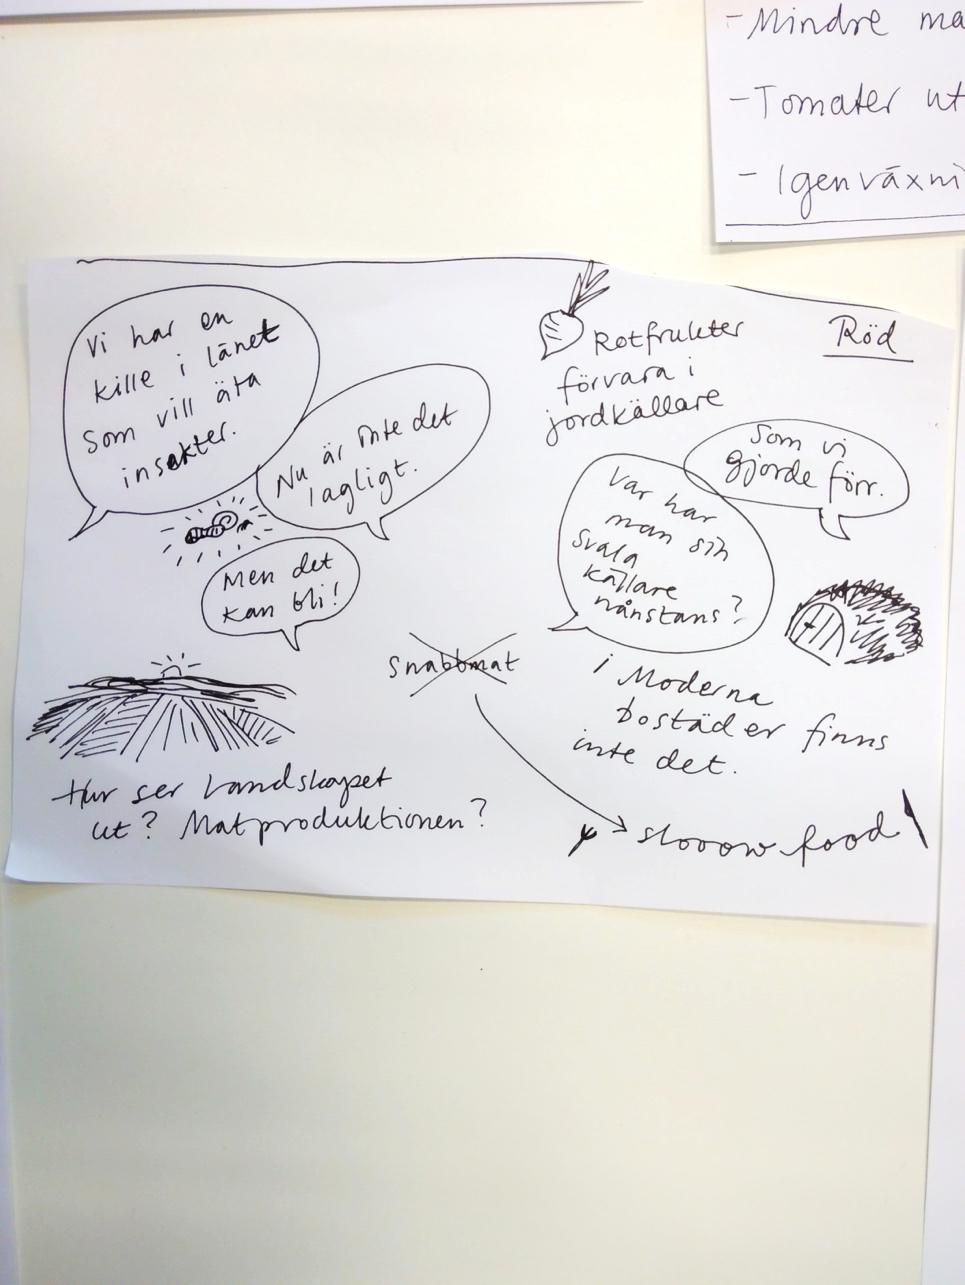 - Mindre ma
- Tomater ut
- Igenväxni
Röd
Vi har en
kille i länet
som vill äta
insekter.
Nu är inte det
lagligt.
Men det
kan bli!
Rotfrukter
förvara i
jordkällare
Som vi
gjorde förr.
Var har
man sin
svala
källare
nånstans?
i Moderna
bostäder finns
inte det.
Snabbmat
slooow food
Hur ser Landskapet
ut? Matproduktionen?